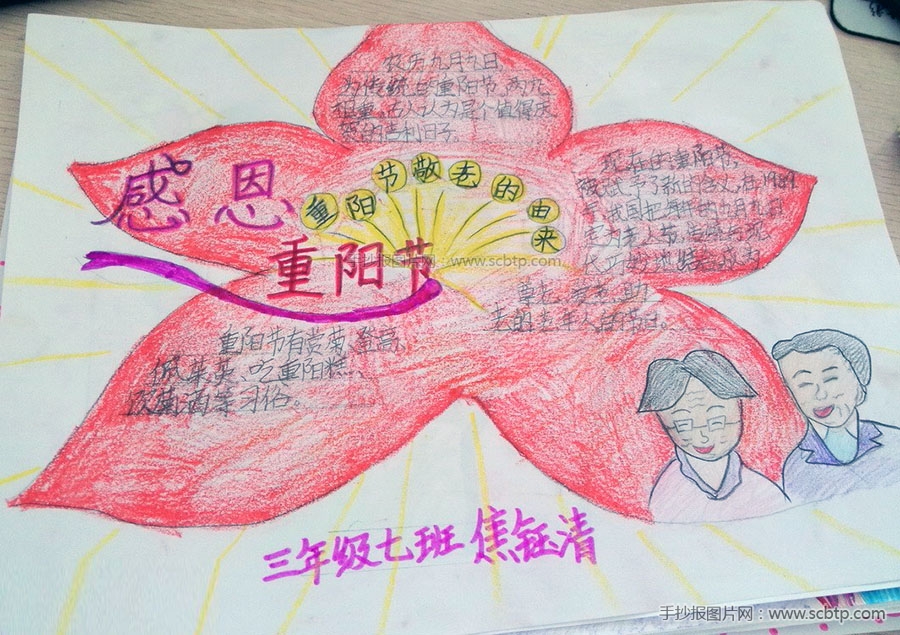 农历九月九日,
为传统的重阳节,两九
相重,古人认为是个值得庆
贺的吉利日子。
感恩
重阳节
重阳节敬老的由来
现在的重阳节,
被赋予了新的含义,在1989
年,我国把每年的九月九日
定为老人节,传统与现
代巧妙地结合,成为
尊老、爱老、助
老的老年人的节日。
重阳节有赏菊、登高、
佩茱萸、吃重阳糕、
饮菊酒等习俗。
三年级七班 焦钰清
手抄报图片网:www.scbtp.com
手抄报图片网:www.scbtp.com